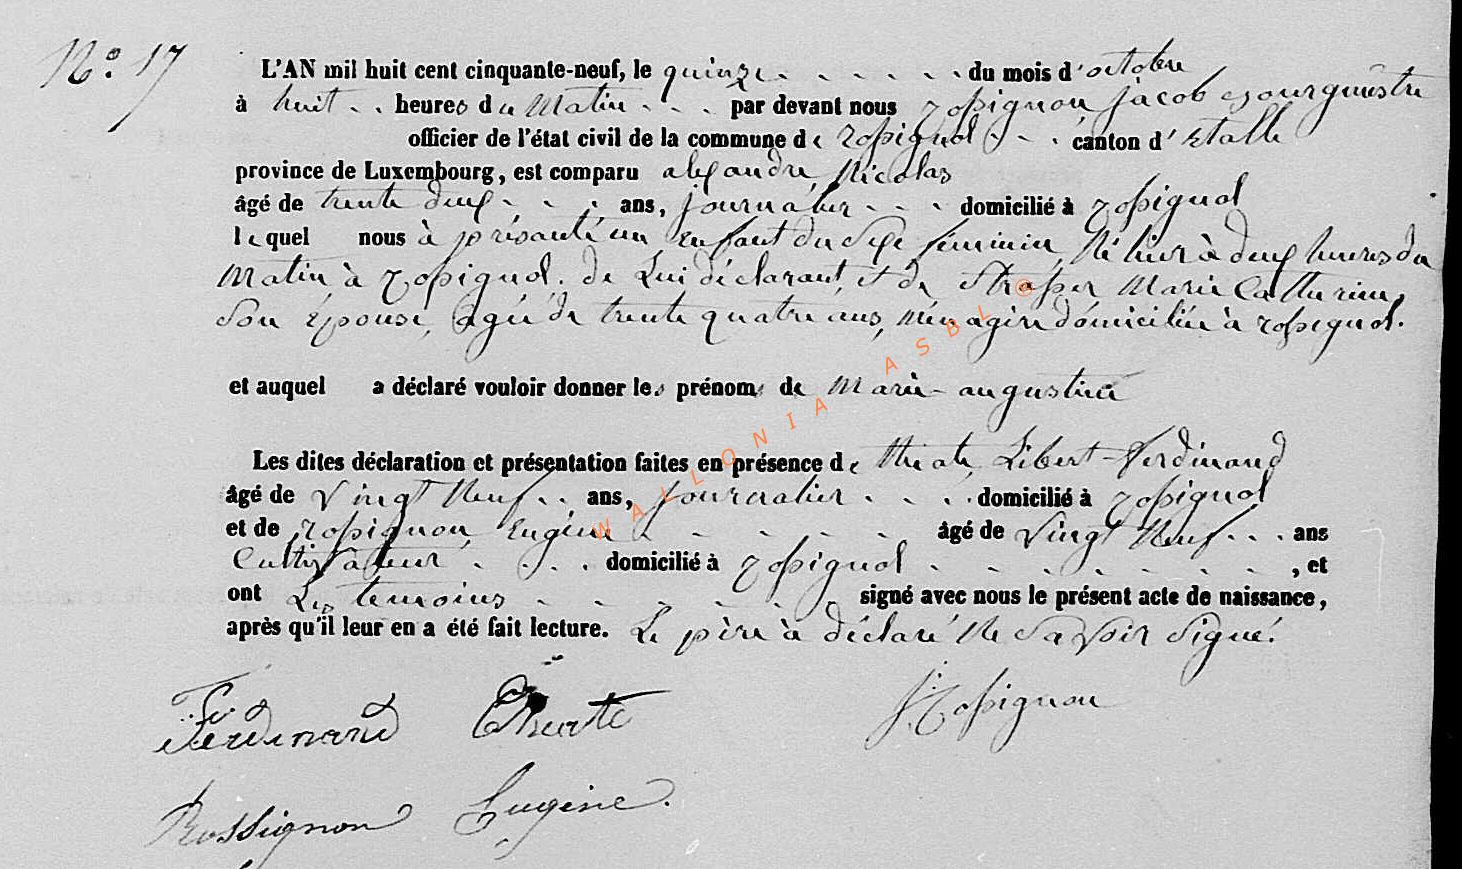 N.º 17
L'AN mil huit cent cinquante-neuf, le quinze . . . . . . du mois d'octobre
à huit . . heures du Matin . . . par devant nous rossignon jacob bourguéstre
officier de l'état civil de la commune de rossignol . . . canton d'Etalle
province de Luxembourg, est comparu alexandre Nicolas
âgé de trente deux . . . . ans, journalier . . . domicilié à rossignol
lequel nous à présenté un Enfant du Sexe féminin, Né hier à deux heures du
Matin à rossignol. de Lui déclarant, et de Strasser Marie Catherine,
Son Epouse, agée de trente quatre ans, ménagère domiciliée à rossignol.
et auquel a déclaré vouloir donner les prénoms de Marie-augustine
Les dites déclaration et présentation faites en présence de thiate, Libert-Ferdinand
âgé de Vingt Neuf . . ans, journalier . . . . domicilié à rossignol
et de rossignon Eugène . . . . . . âgé de Vingt Neuf . . . ans
Cultivateur . . . . domicilié à rossignol . . . . . . . , et
ont Les temoins . . . . . . signé avec nous le présent acte de naissance,
après qu'il leur en a été fait lecture. Le père à déclaré Ne Savoir Signé.
Ferdinand Thiate
J. Rossignon
Rossignon Eugène.
WALLONIA ASBL ©